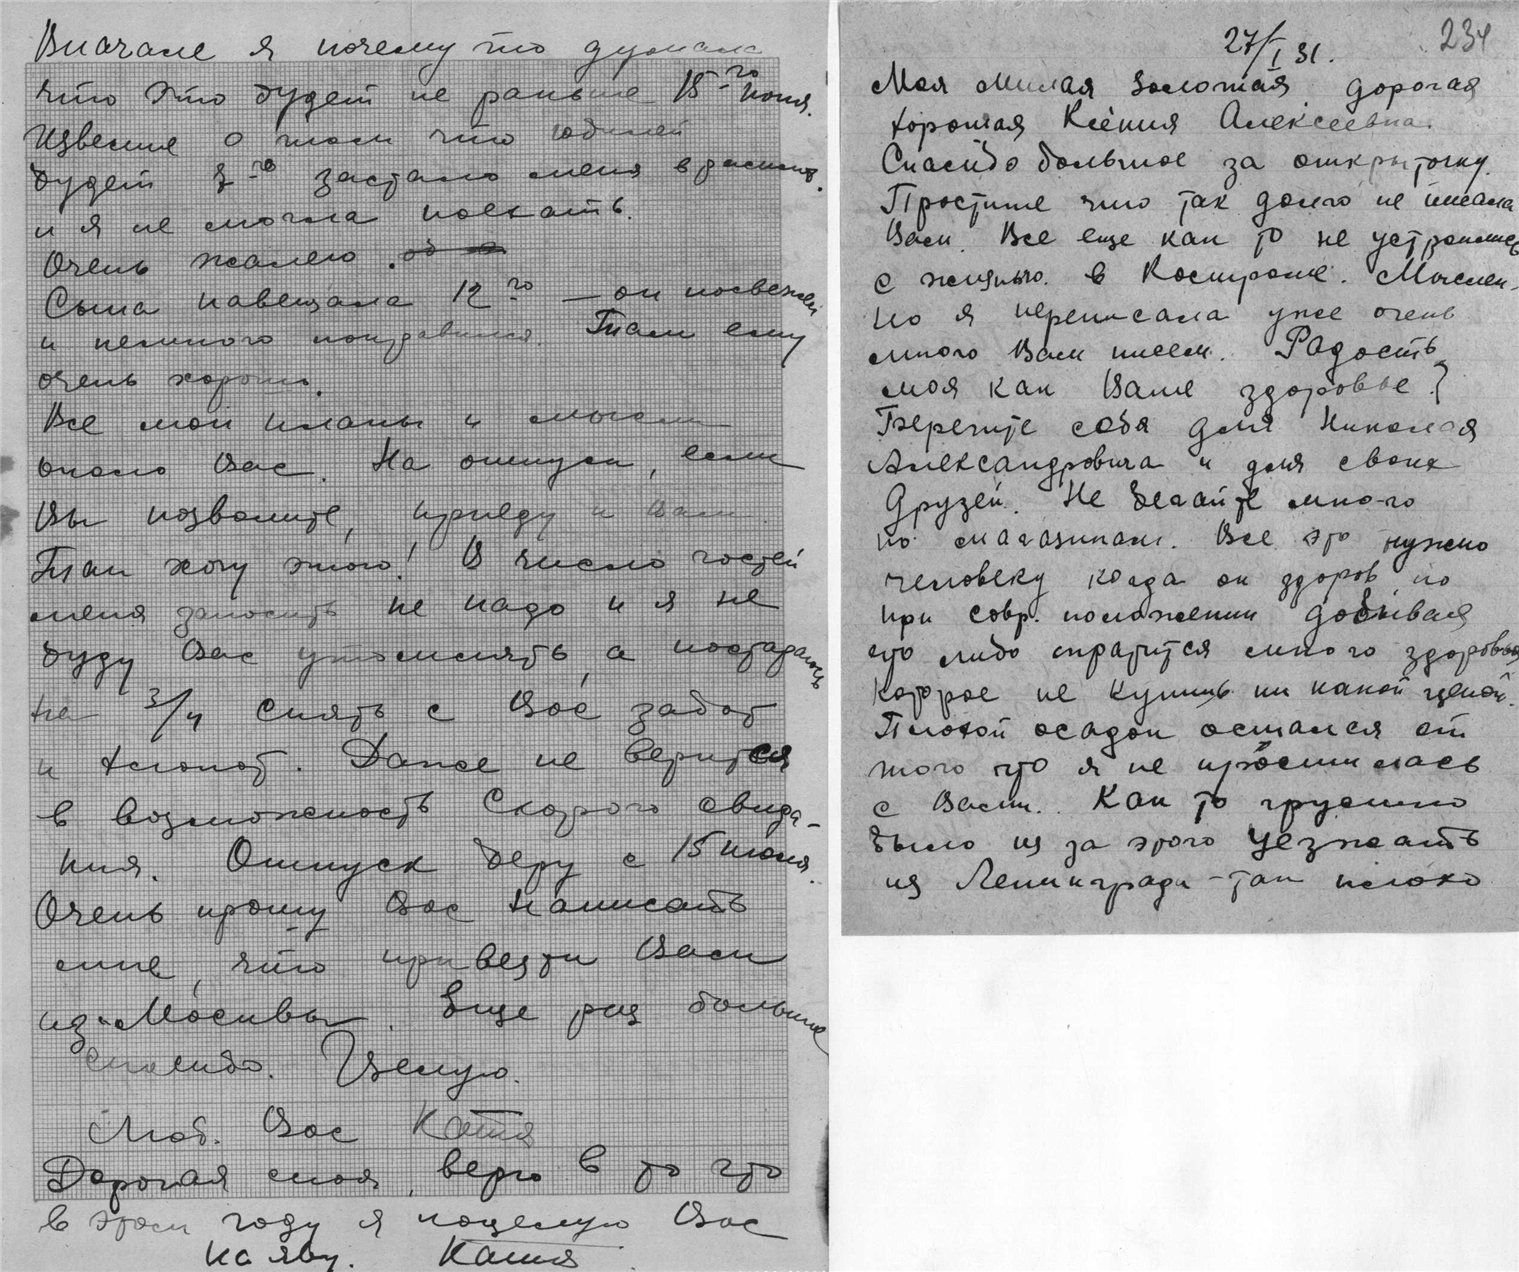 Вначале я почему то думала
что это будет не раньше 15-го июня.
Известие о том что юбилей
будет 8-го застало меня врасплох.
и я не могла поехать.
Очень жалею.
Сына навещала 12го — он посвежел
и немного поправился. Там ему
очень хорошо.
Все мои планы и мысли
около Вас. На отпуск, если
Вы позволите, приеду к Вам.
Так хочу этого! В число гостей
меня заносить не надо и я не
буду Вас утомлять, а постараюсь
на 3/4 снять с Вас забот
и хлопот. Даже не верится
в возможность скорого свида-
ния. Отпуск беру с 15 июля.
Очень прошу Вас написать
мне, что привезти Вам
из Москвы. Еще раз большое
спасибо. Целую.
Люб. Вас Катя
Дорогая моя, верю в то что
в этом году я поцелую Вас
на яву. Катя
234
27/I 31.
Моя милая золотая дорогая
хорошая Ксения Алексеевна.
Спасибо большое за открыточку.
Простите что так долго не писала
Вам. Все еще как то не устроилась
с жизнью в Костроме. Мыслен-
но я переписала уже очень
много Вам писем. Радость
моя как Ваше здоровье?
Берегите себя для Николая
Александровича и для своих
друзей. Не бегайте много
по магазинам. Все это нужно
человеку когда он здоров но
при совр. положении добывая
что либо тратится много здоровья
которое не купишь ни какой ценой.
Плохой осадок остался от
того что я не простилась
с Вами. Как то грустно
было из за этого уезжать
из Ленинграда - так плохо